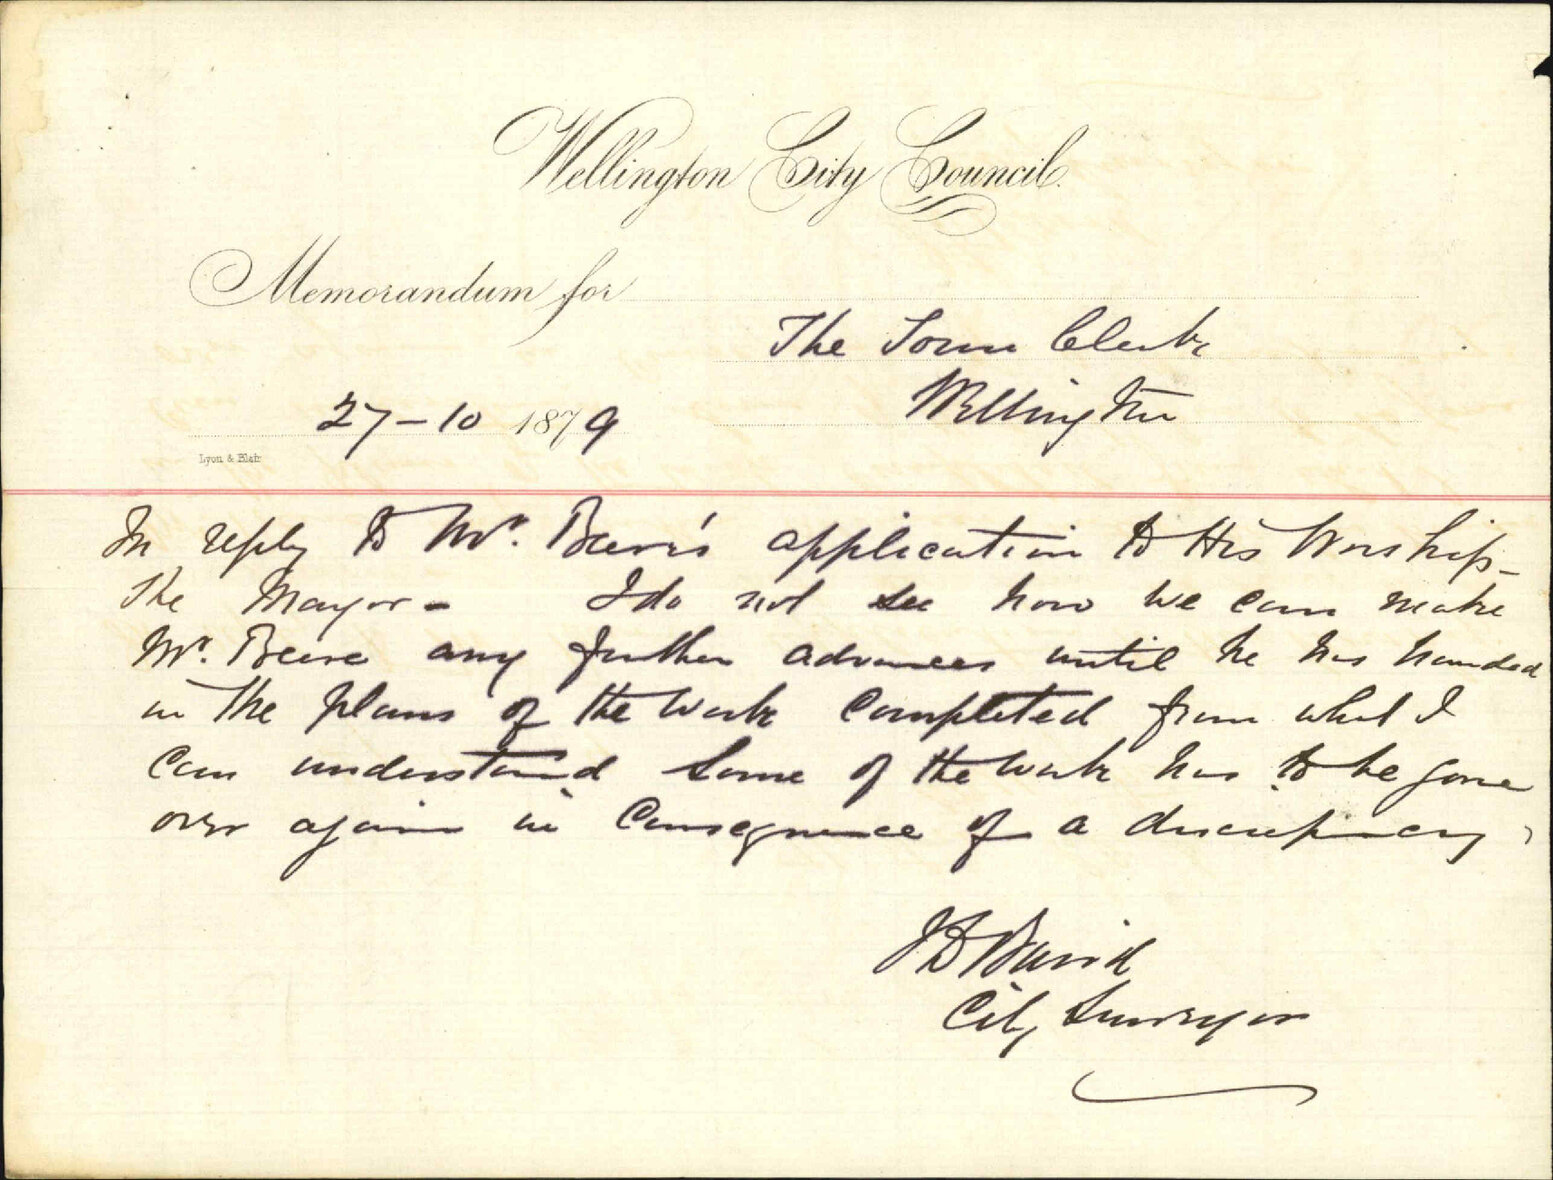 Wellington City Council.
Memorandum for
The Town Clerk
Wellington
27-10 1879
Lyon & Blair
In reply to Mr. Beere's application to His Worship-
the Mayor - I do not see how we can make
Mr. Beere any further advances until he has handed
in the plans of the work completed from what I
can understand some of the work has to be gone
over again in consequence of a discrepancy,
J D Baird
City Surveyor